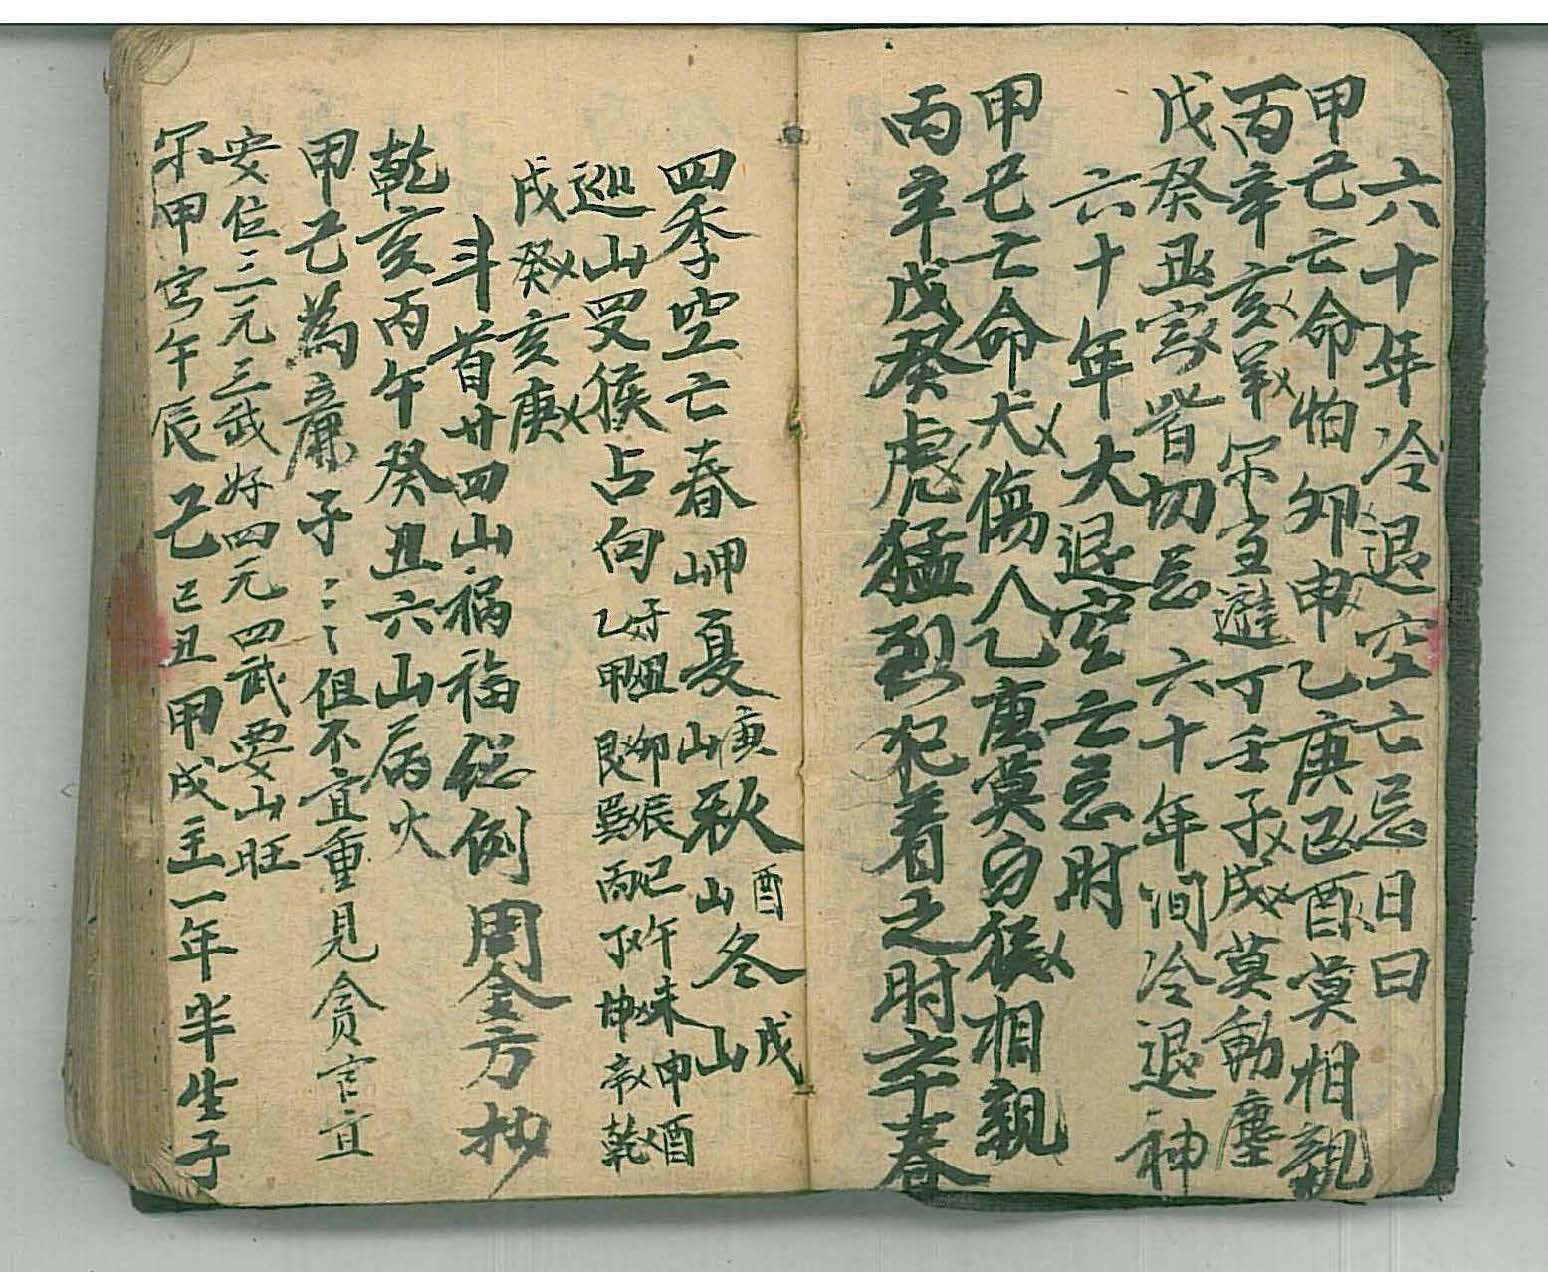 六十年冷退空亡忌日曰
甲己亡命怕卯申乙庚己酉莫相親
丙辛亥羊宜避丁壬子戌莫動塵
戊癸丑寅皆切忌 六十年間冷退神
六十年大退空亡忌时
甲己亡命犬傷人乙庚莫另猴相親
丙辛戊癸虎猛到犯着之时辛春
四季空亡春山甲夏山庚秋山酉冬山戌
巡山罗猴占向
戌癸亥庚
斗首廿四山禍福総例 周金方抄
乾亥丙午癸丑六山属火
甲己為廉子但不宜重見貪官宜
安位三元三武好四元四武要山旺
甲寅午辰己巳丑甲戌主一年半生子